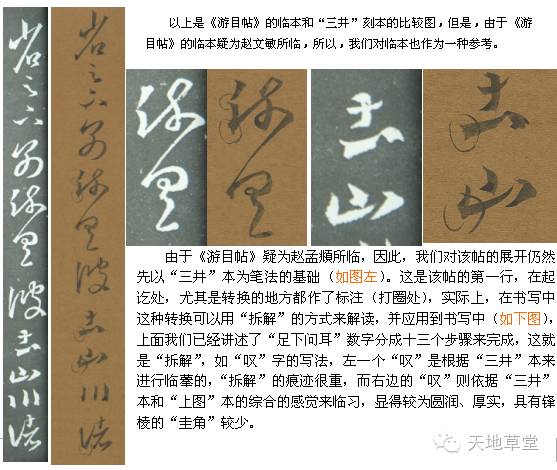 省足下別疏具彼土山川諸
省足下別疏具彼土山川諸
以上是《游目帖》的临本和“三井”刻本的比较图，但是，由于《游
目帖》的临本疑为赵文敏所临，所以，我们对临本也作为一种参考。
疏具
疏具
土山
土山
由于《游目帖》疑为赵孟頫所临，因此，我们对该帖的展开仍然
先以“三井”本为笔法的基础（如图左）。这是该帖的第一行，在起
讫处，尤其是转换的地方都作了标注（打圈处），实际上，在书写中
这种转换可以用“拆解”的方式来解读，并应用到书写中（如下图），
上面我们已经讲述了“足下问耳”数字分成十三个步骤来完成，这就
是“拆解”，如“叹”字的写法，左一个“叹”是根据“三井”本来
进行临摹的，“拆解”的痕迹很重，而右边的“叹”则依据“三井”
本和“上图”本的综合的感觉来临习，显得较为圆润、厚实，具有锋
棱的“圭角”较少。
天地草堂